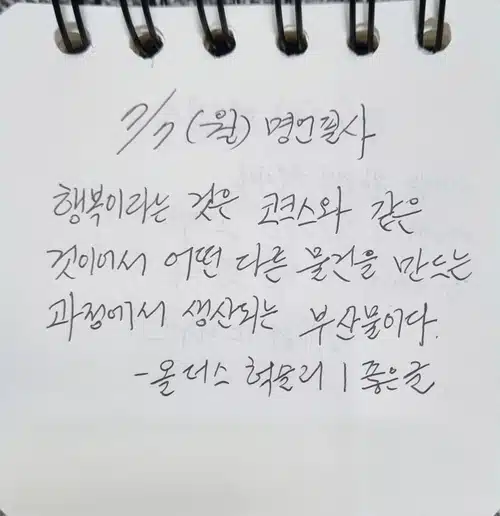 7/7 (월) 명언필사
행복이라는 것은 코크스와 같은
것이어서 어떤 다른 물건을 만드는
과정에서 생산되는 부산물이다.
-올더스 헉슬리 | 좋은글